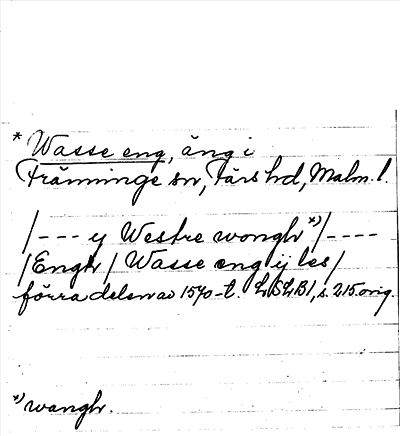 * Wasse eng, äng i
Tränninge sn, Färs hd, Malm. l.
/--- ij Westre wongh *)/----
/Engh/ Wasse eng ij les/
förra delen av 1570-t. LSLB1, s. 215 orig.
*) wangh.